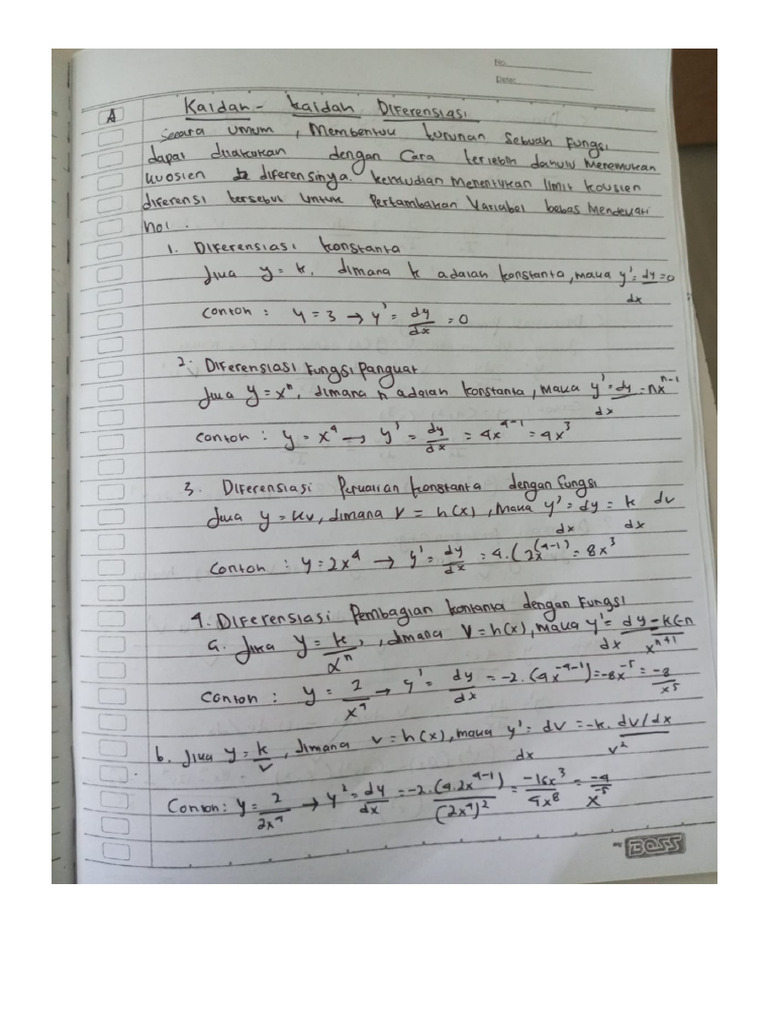 No.
Date:
A
Kaidah - kaidah Diferensiasi
Secara umum, Membentuk turunan Sebuah Fungsi
dapat dilakukan dengan Cara terlebih dahulu Menemukan
kuosien diferensinya. kemudian Menentukan limit kousien
diferensi tersebut Untuk Pertambahan Variabel bebas Mendekati
nol.
1. Diferensiasi konstanta
Jika y = k, dimana k adalah konstanta, maka y' = dy/dx = 0
Contoh : y = 3 → y' = dy/dx = 0
2. Diferensiasi Fungsi Pangkat
Jika y = xⁿ, dimana n adalah konstanta, Maka y' = dy/dx = nxⁿ⁻¹
Contoh : y = x⁴ → y' = dy/dx = 4x⁴⁻¹ = 4x³
3. Diferensiasi Perkalian konstanta dengan fungsi
Jika y = kv, dimana V = h(x), Maka y' = dy/dx = k dv/dx
Contoh : y = 2x⁴ → y' = dy/dx = 4.(2x⁽⁴⁻¹⁾ = 8x³
4. Diferensiasi Pembagian kontanta dengan Fungsi
a. Jika y = k/xⁿ, dimana V = h(x), maka y' = dy/dx = k(-n/xⁿ⁺¹
Contoh : y = 2/x⁴ → y' = dy/dx = -2.(4x⁻⁴⁻¹) = -8x⁻⁵ = -8/x⁵
b. Jika y = k/v, dimana v = h(x), maka y' = dv/dx = -k. dv/dx/v²
Contoh: y = 2/2x⁴ → y² = dy/dx = -2.(4.2x⁴⁻¹)/(2x⁴)² = -16x³/4x⁸ = -4/x⁻⁵
BOSS